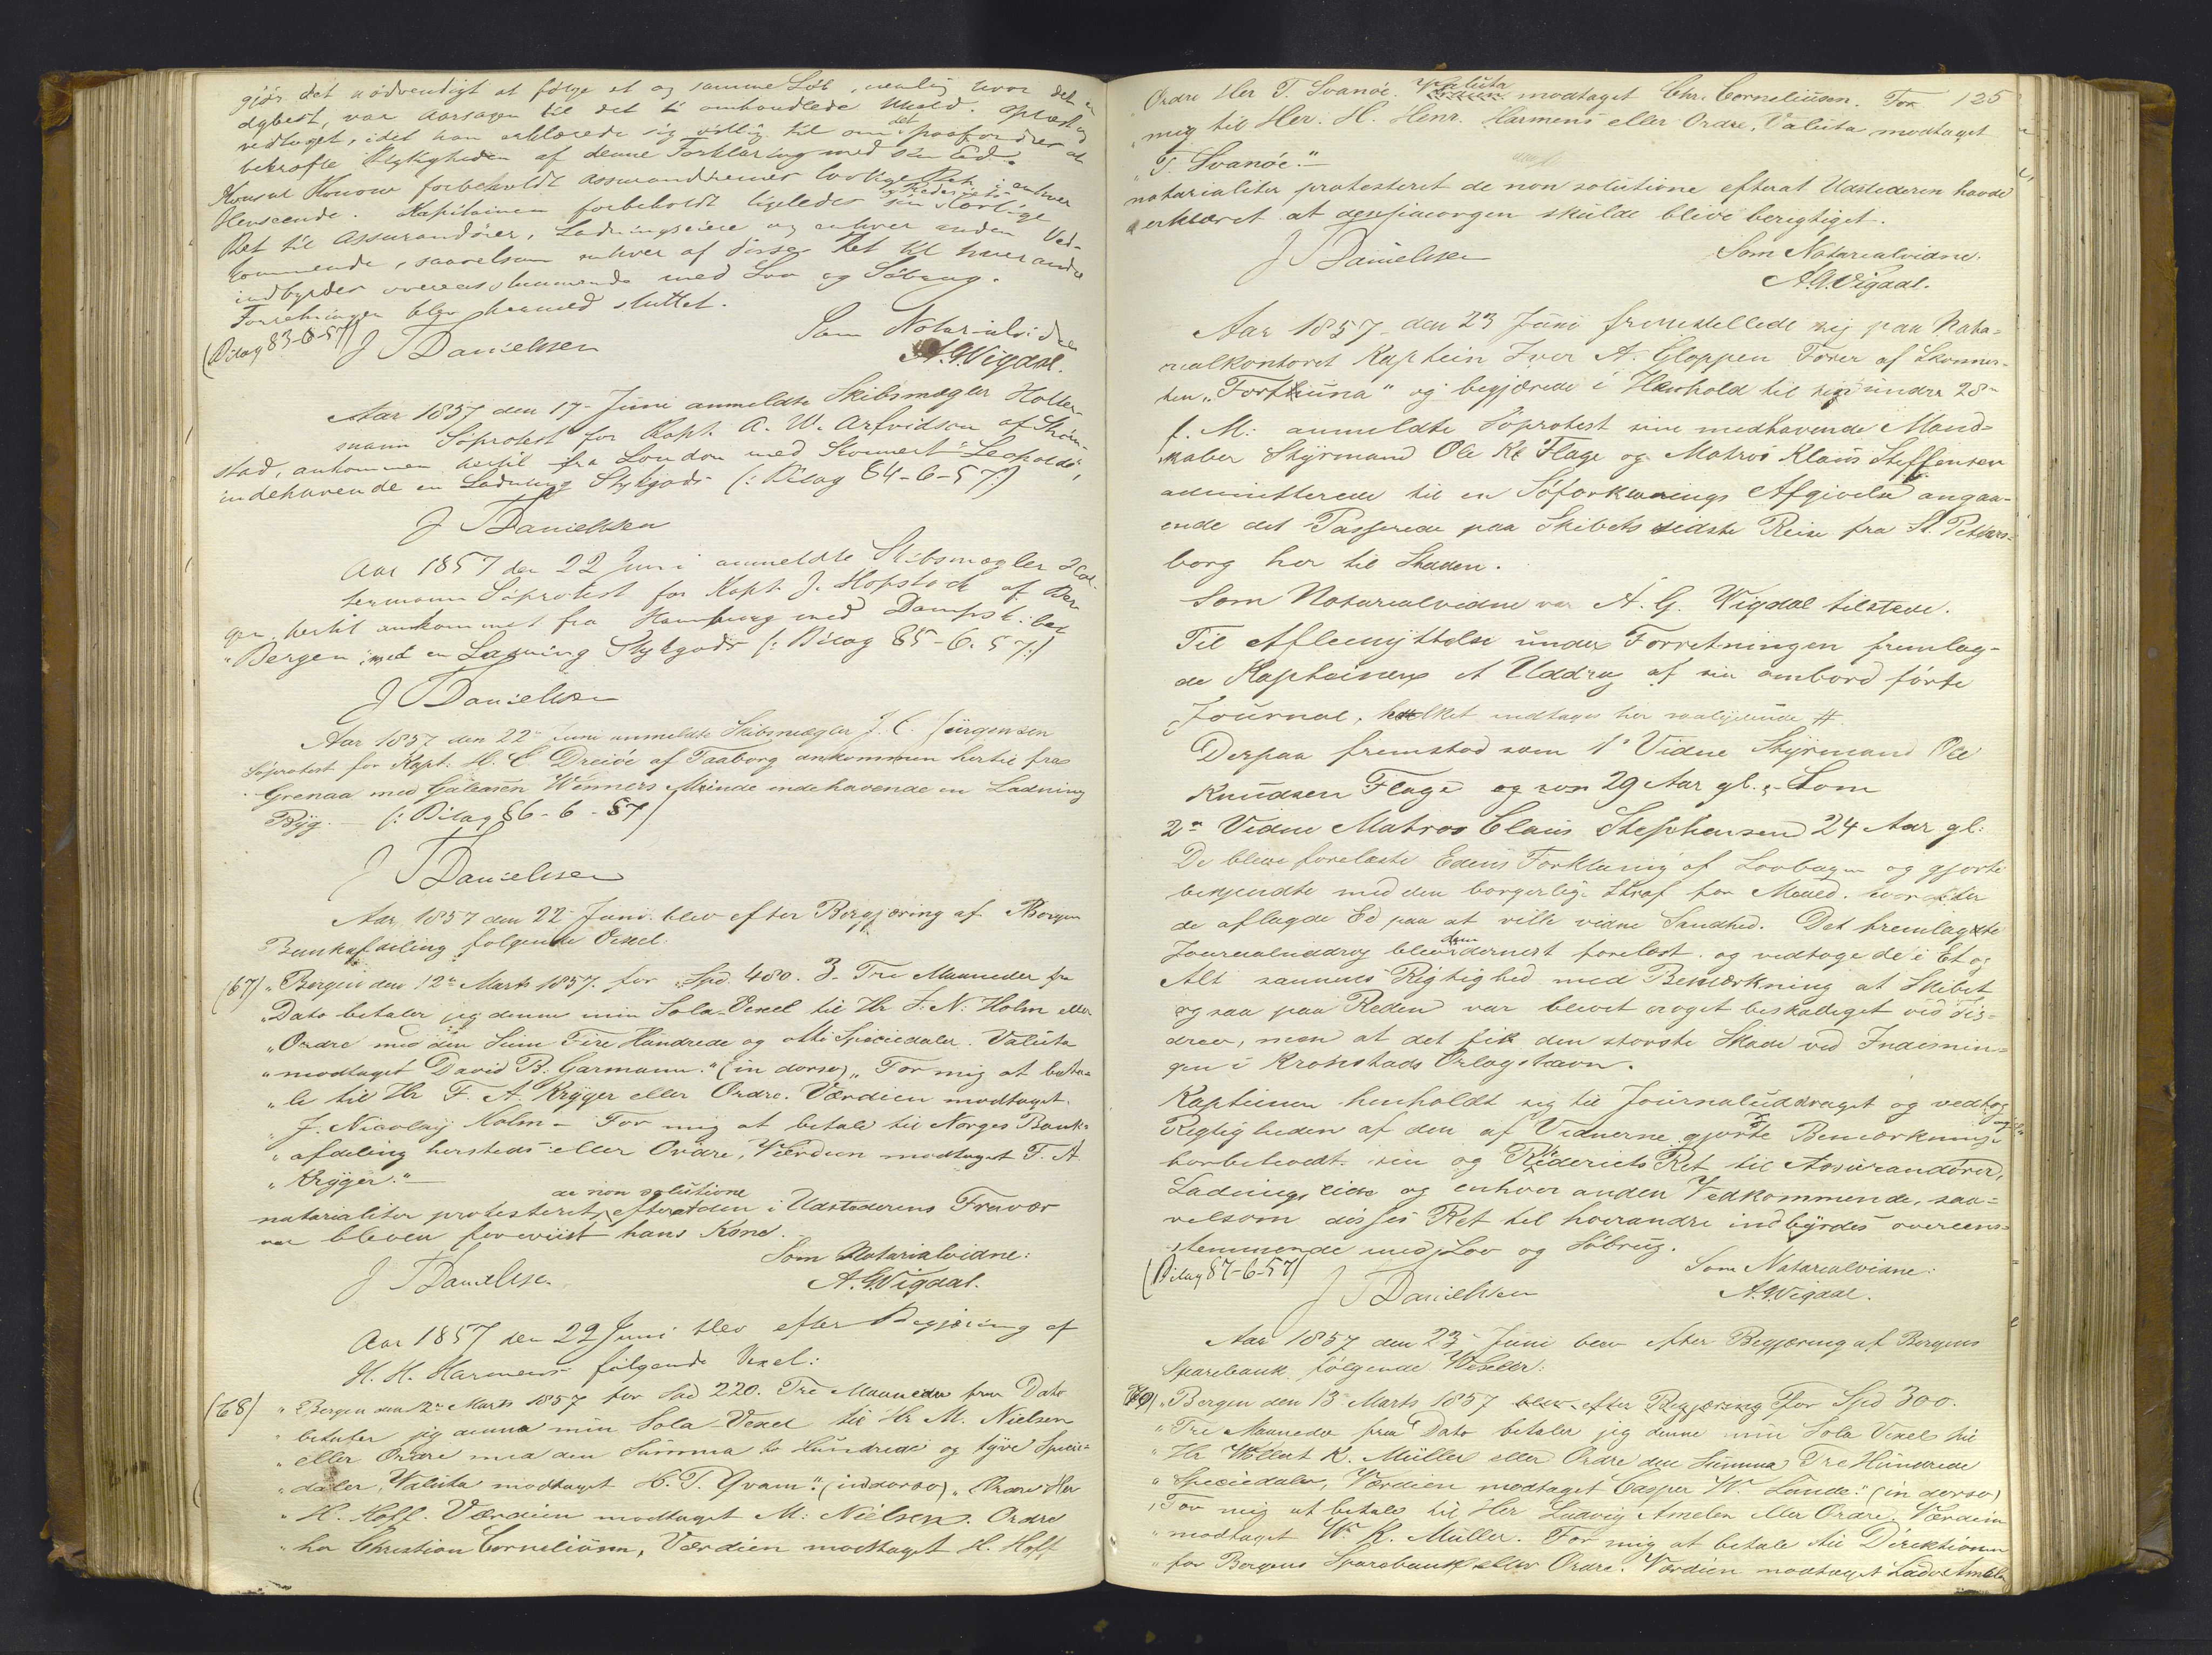 gjør det nödvendigt at følge et og samme Løb, nemlig hvor det er
dybest, var Aarsagen til det omhandlede Uheld. Oplæst og
vedtaget, idet han erklærede sig villig til om det paafordres at
bekræfte Rigtigheden af denne Forklaring med sin Eed.
Konsul Konow forbeholdt Assurandeurernes lovlige Ret i enhver
Henseende. Kapitainen forbeholdt ligeledes sin og Rederiets lovlige
Ret til Assurandører, Ladningseiere og enhver anden Ved-
kommende, saavelsom enhver af disses Ret til hverandre
indbyrdes overensstemmende med Lov og Søbrug.
Forretningen blev hermed sluttet.
(Bilag 83-6-57) J Danielssen Som Notarialvidne
A. G. Wigdal.
Aar 1857 den 17 Juni anmeldte Skibsmægler Holter-
mann Søprotest for Kapt. A. W. Arfvidson af Strøm-
stad, ankommen hertil fra London med Skonnert "Leopold",
indehavende en Ladning Stykgods (: Bilag 84-6-57:)
J Danielssen
Aar 1857 den 22 Juni anmeldte Skibsmægler Hol-
termann Søprotest for Kapt. J. Hopstock af Ber-
gen, hertil ankommet fra Hamburg med Dampskibet
"Bergen" med en Ladning Stykgods (: Bilag 85-6-57:)
J Danielssen
Aar 1857 den 22n Juni anmeldte Skibsmægler J. C. Jürgensen
Søprotest for Kapt. H. C. Dreiøe af Faaborg ankommen hertil fra
Grenaa med Galeasen Wenners Minde indehavende en Ladning
Byg. — (: Bilag 86-6-57)
J Danielssen
Aar 1857 den 22 Juni blev efter Begjæring af Bergens
Bankafdeling følgende Vexel:
(67) "Bergen den 12n Marts 1857. for Spd. 480. 3. Tre Maaneder fra
"Dato betaler jeg denne min Sola-Vexel til Hr J. N. Holm eller
"Ordre med den Sum Fire Hundrede og otti Speciedaler. Valuta
"modtaget David B. Garmann." (in dorso) "For mig at beta-
"le til Hr F. A. Krÿger eller Ordre. Værdien modtaget.
"J. Nicolaÿ Holm – For mig at betale til Norges Bank-
"afdeling hersteds eller Ordre, Værdien modtaget F. A.
"Krÿger." —
notarialiter protesteret de non solutione efterat den i Udstederens Fravær
var bleven foreviist hans Kone.
J Danielssen Som Notarialvidne:
A. G. Wigdal.
Aar 1857 den 22 Juni blev efter Begjæring af
H. H. Harmens følgende Vexel:
(68) "Bergen den 2n Marts 1857 for Spd 220. Tre Maaneder fra Dato
"betaler jeg denne min Sola-Vexel til Hr M. Nielsen
"eller Ordre med den Summa to Hundrede og tÿve Specie-
"daler, Valuta modtaget C. T. Qvam." (in dorso) "Ordre Her
"H. Hoff. Værdien modtaget M. Nielsen. Ordre
"hr Christian Corneliusen, Værdien modtaget H. Hoff
125
Ordre Her T. Svanøe. Valuta modtaget Chr. Corneliusen. For
"mig til Her. H. Henr. Harmens eller Ordre, Valuta modtaget
"T. Svanöe."—
notarialiter protesteret de non solutione efterat Udstederen havde
erklæret at den skulde blive berigtiget.
J Danielssen Som Notarialvidne.
A. G. Wigdal.
Aar 1857 den 23 Juni fremstillede sig paa Nota-
rialkontoret Kaptein Iver A. Gloppen Fører af Skonner-
ten "Forthuna" og begjærede i Henhold til sin under 28n
f. M. anmeldte Søprotest sine medhavende Mand-
skaber Styrmand Ole K Flage og Matros Klaus Steffensen
admitterede til en Søforklarings Afgivelse angaa-
ende det Passerede paa Skibets sidste Reise fra St. Peters-
borg her til Staden.
Som Notarialvidne var A. G. Wigdal tilstede.
Til Aflemÿttelse under Forretningen fremlag-
de Kapteinen et Uddrag af sin ombord førte
Journal, hvilket indtages her saalÿdende #
Derpaa fremstod som 1e Vidne Styrmand Ole
Knudsen Flage og var 29 Aar gl. – Som
2n Vidne Matros Claus Stephensen 24 Aar gl.
De bleve forelæste Edens Forklaring af Lovbogen og gjorte
bekjendte med den borgerlige Straf for Meneed. hvorefter
de aflagde Ed paa at ville vidne Sandhed. Det fremlagte
Journaluddrag blev dem dernæst forelæst. og vedtoge de i Et og
Alt sammes Rigtighed med Bemærkning at Skibet
ogsaa paa Reden var blevet noget beskadiget ved Iis-
drev, men at det fik den største Skade ved Indisnin-
gen i Kronstads Orlogshavn.
Kapteinen henholdt sig til Journaluddraget og vedtog
Rigtigheden af den af Vidnerne gjorte Bemærkning og
forbeholdt sin og Rederiets Ret til Assurandører,
Ladningseiere og enhver anden Vedkommende, saa-
velsom disses Ret til hverandre indbÿrdes overeens-
stemmende med Lov og Søbrug.
(Bilag 87-6-57) Som Notarialvidne:
J Danielssen A. G. Wigdal.
Aar 1857 den 23 Juni blev efter Begjæring af Bergens
Sparebank følgende Vexler:
(70) "Bergen den 13 Marts 1857 blev efter Begjæring For Spd 300.
"Tre Maaneder fra Dato betaler jeg denne min Sola Vexel til
"Hr Wollert K. Müller eller Ordre den Summa Tre Hundrede
"Speciedaler, Værdien modtaget Casper W. Lunde." (in dorso)
"For mig at betale til Her Ludvig Amelen eller Ordre. Værdien
"modtaget W. K. Müller. For mig at betale til Direktionen
"for Bergens Sparebank eller Ordre. Værdien modtaget Ludv. Amelen